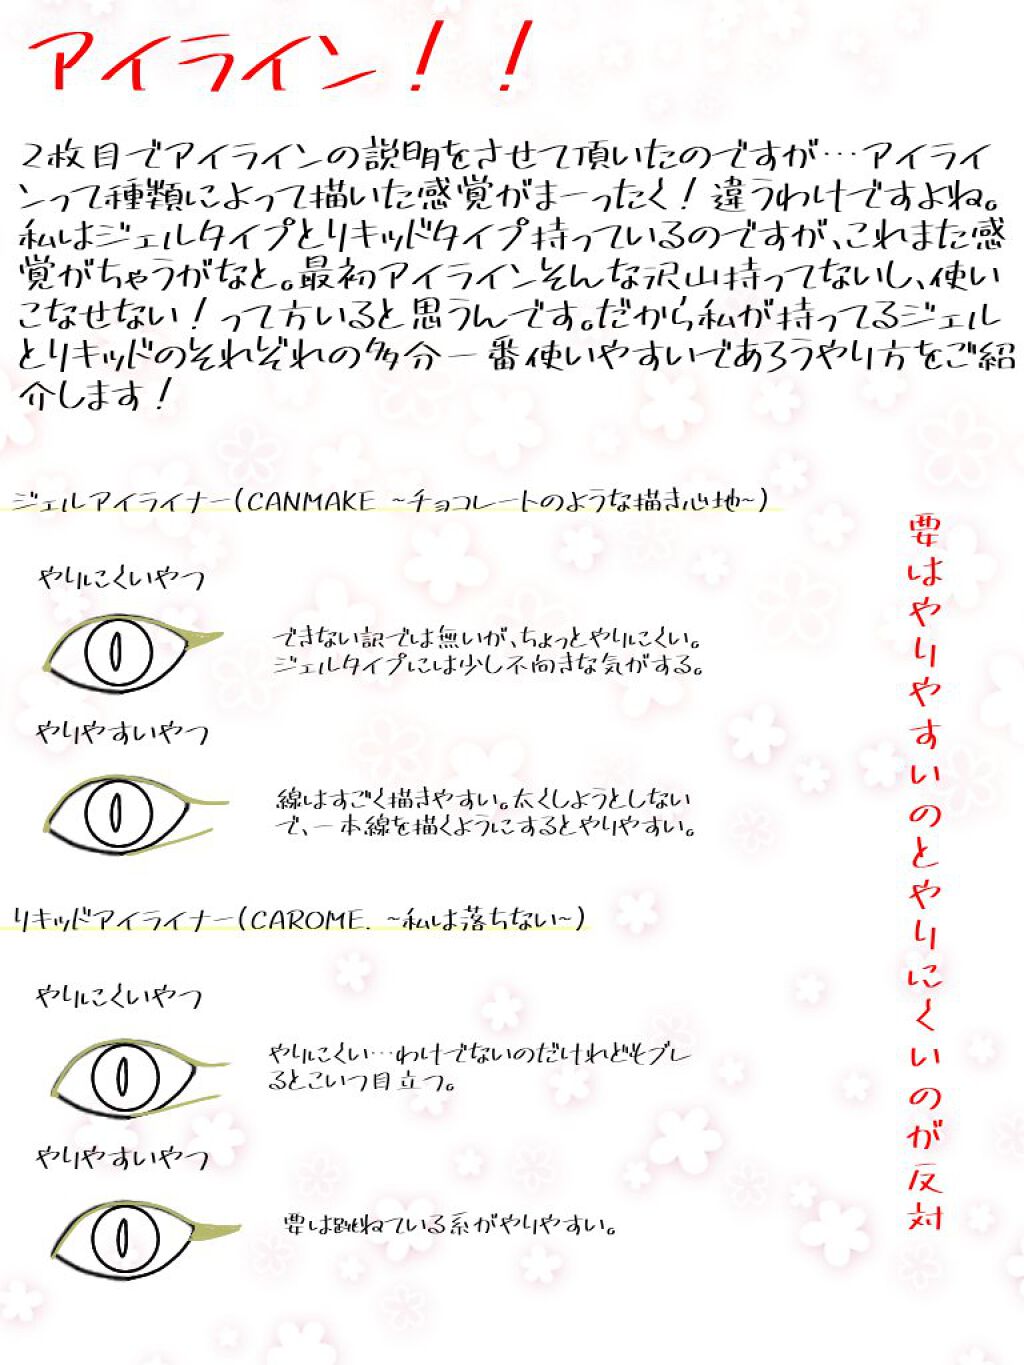 アイライン！！
2枚目でアイラインの説明をさせて頂いたのですが…アイライ
ンって種類によって描いた感覚がまーったく！違うわけですよね。
私はジェルタイプとリキッドタイプ持っているのですが、これまた感
覚がちゃうがなと。最初アイラインそんな沢山持ってないし、使い
こなせない！って方いると思うんです。だから私が持ってるジェル
とリキッドのそれぞれの多分一番使いやすいであろうやり方をご紹
介します！
ジェルアイライナー(CANMAKE ~チョコレートのような描き心地~)
やりにくいやつ
できない訳では無いが、ちょっとやりにくい。
ジェルタイプには少し不向きな気がする。
やりやすいやつ
線はすごく描きやすい。太くしようとしない
で、一本線を描くようにするとやりやすい。
リキッドアイライナー(CAROME. ~私は落ちない~)
やりにくいやつ
やりにくい…わけでないのだけれどもブレ
るとこいつ目立つ。
やりやすいやつ
要は跳ねている系がやりやすい。
要はやりやすいのとやりにくいのが反対